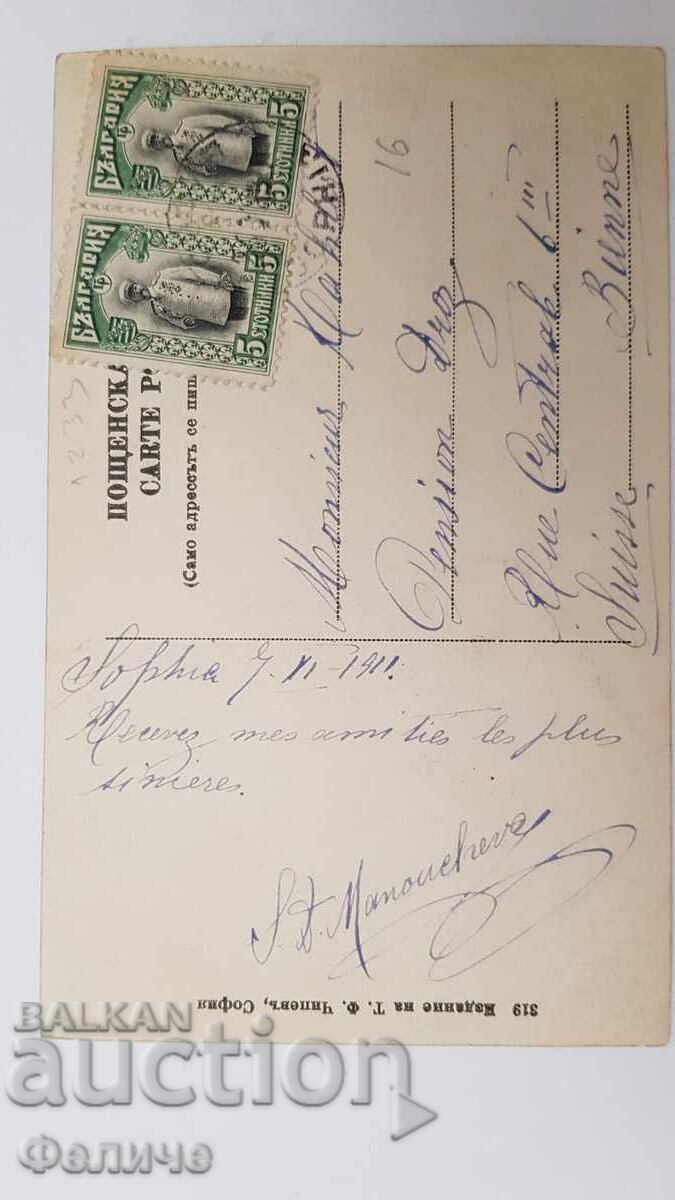 БЪЛГАРИЯ
5 СТОТИНКИ 5
БЪЛГАРИЯ
5 СТОТИНКИ 5
1233
16
ПОЩЕНСКА
CARTE P
(Само адрессътъ се пиш
Monsieur
Pension Droz
Rue Centrab 6 III
Suisse Bienne
Sophia 7. XI-1911.
Recevez mes amitiés les plus
sinieres.
S. D. Manoucheva
319 Издание на Т. Ф. Чипевъ, София
BALKAN
auction
Феличе